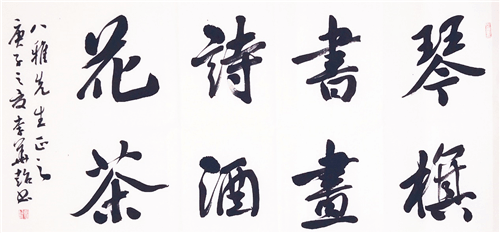 琴棋
書畫
詩酒
花茶
八雅先生正之
庚子之夏李